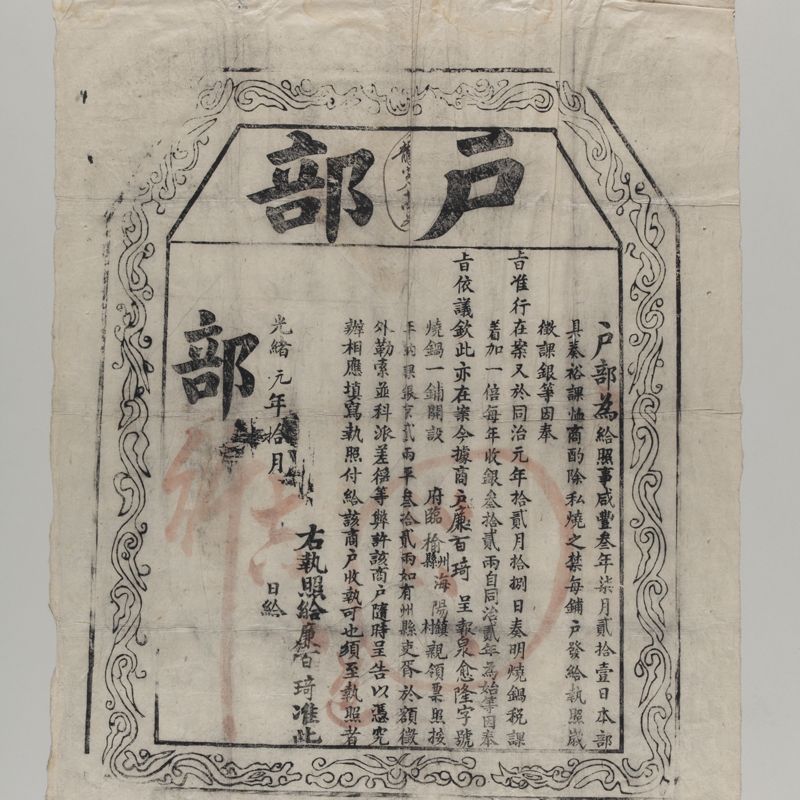 戶部
戶部為給照事咸豐叁年柒月貳拾壹日本部
具奏裕課恤商酌除私燒之禁每鋪戶發給執照歲
徵課銀等因奉
旨准行在案又於同治元年拾貳月拾捌日奏明燒鍋稅課
着加一倍每年收銀叁拾貳兩自同治貳年為始等因奉
旨依議欽此亦在案今據商戶廉百琦呈報泉愈隆字號
燒鍋一鋪開設 府臨榆縣州海陽鎮村親領票照按
年納課銀京貳兩平叁拾貳兩如有州縣吏胥於額徵
外勒索並科派差徭等弊許該商戶隨時呈告以憑究
辦相應填寫執照付給該商戶收執可也須至執照者
右執照給廉百琦准此
光緒元年拾月 日給
部